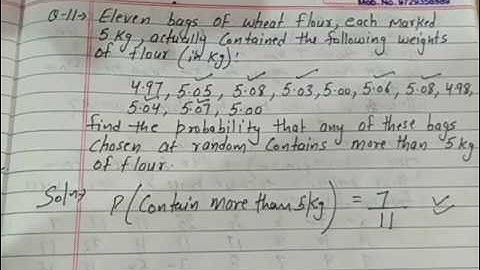 Mob. No. 9729350989
Q-11→ Eleven bags of wheat flour, each marked
5 Kg, actually contained the following weights
of flour (in Kg):
4.97, 5.05, 5.08, 5.03, 5.00, 5.06, 5.08, 4.98,
5.04, 5.07, 5.00
find the probability that any of these bags
chosen at random contains more than 5 kg
of flour.
Soln→ P(Contain more than 5 kg) = 7/11